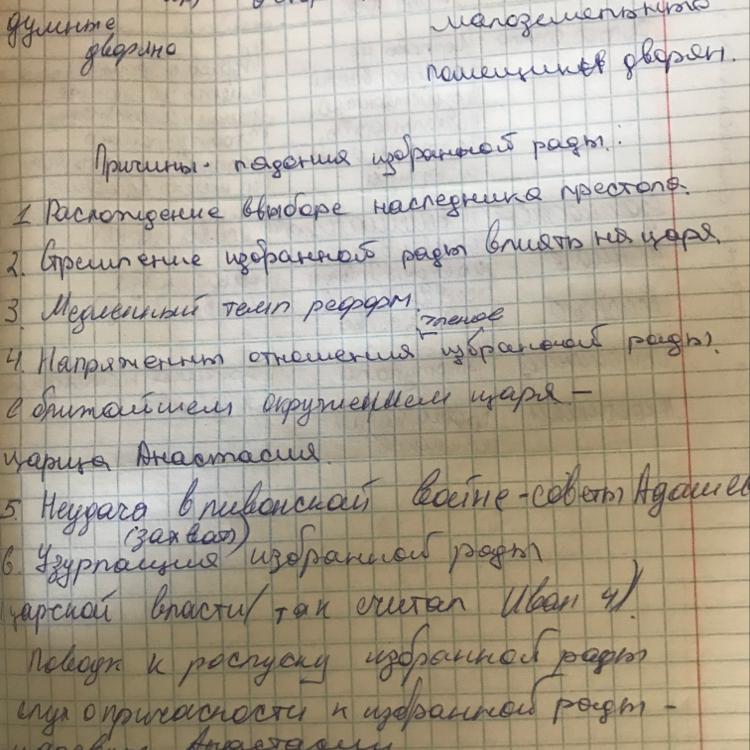 думные
дворяне
малоземельные
помещиков дворян.
Причины падения избранной рады:
1. Расхождение ввыборе наследника престола.
2. Стремление избранной рады влиять на царя.
3. Медленный темп реформ.
членов
4. Напряженны отношения избранной рады
с ближайшем окружением царя –
царица Анастасия.
5. Неудача в ливонской войне - советы Адашев
(захват)
6. Узурпация избранной рады
царской власти (так считал Иван 4).
Поводк к роспуску избранной рады
слух опричасности к избранной рады -
Анастасии